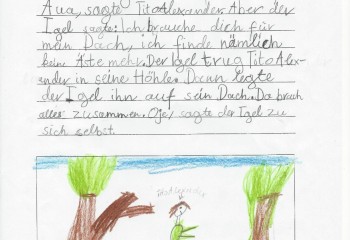 Aua, sagte Tito Alexander. Aber der
Igel sagte: Ich brauche dich für
mein Dach, ich finde nämlich
keine Äste mehr. Der Igel trug Tito Alex-
ander in seine Höhle. Dann legte
der Igel ihn auf sein Dach. Da brach
alles zusammen. Oje, sagte der Igel zu
sich selbst.
Tito Alexander